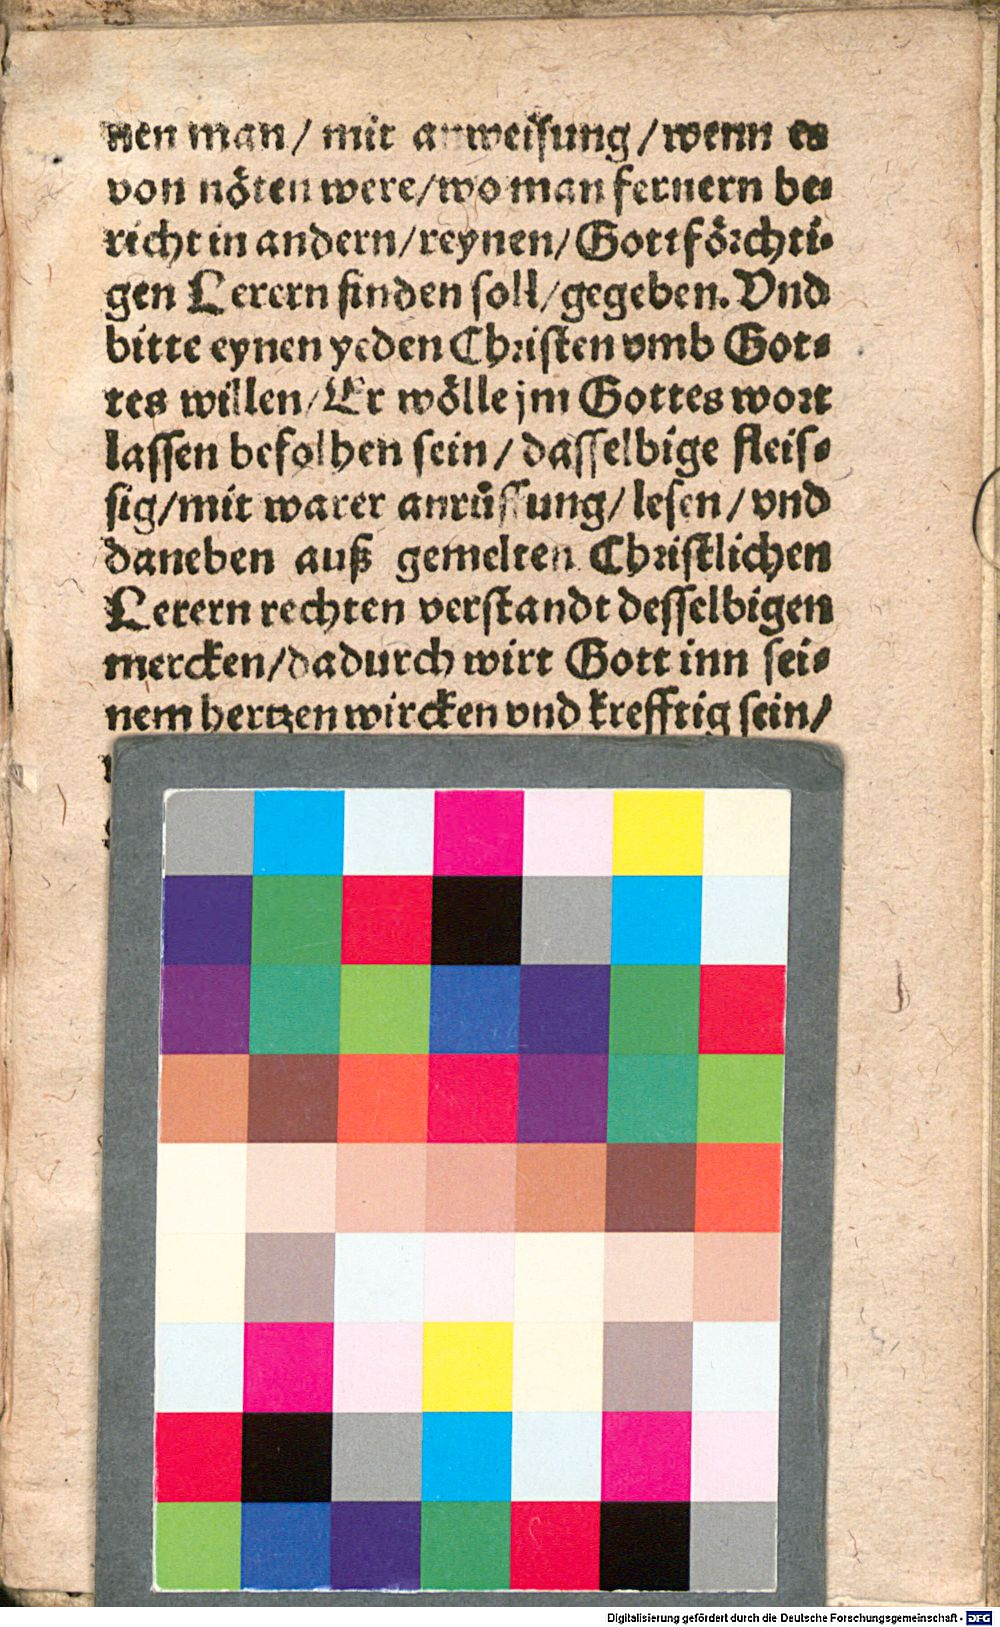 nen man / mit anweisung / wenn es
von nöten were / wo man fernern be⸗
richt in andern / reynen / Gottförchti⸗
gen Lerern finden soll / gegeben. Vnd
bitte eynen yeden Christen vmb Got⸗
tes willen / Er wölle jm Gottes wort
lassen befolhen sein / dasselbige fleis⸗
sig / mit warer anrüffung / lesen / vnd
daneben auß gemelten Christlichen
Lerern rechten verstandt desselbigen
mercken / dadurch wirt Gott inn sei⸗
nem hertzen wircken vnd krefftig sein /
Digitalisierung gefördert durch die Deutsche Forschungsgemeinschaft - DFG